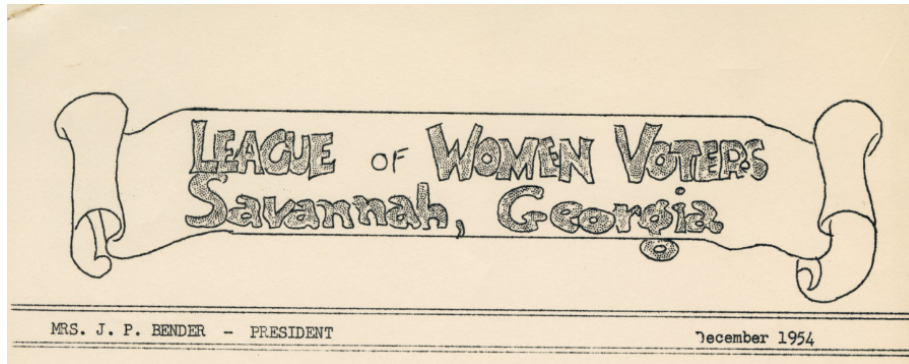 LEAGUE OF WOMEN VOTERS
Savannah, Georgia
MRS. J. P. BENDER - PRESIDENT December 1954